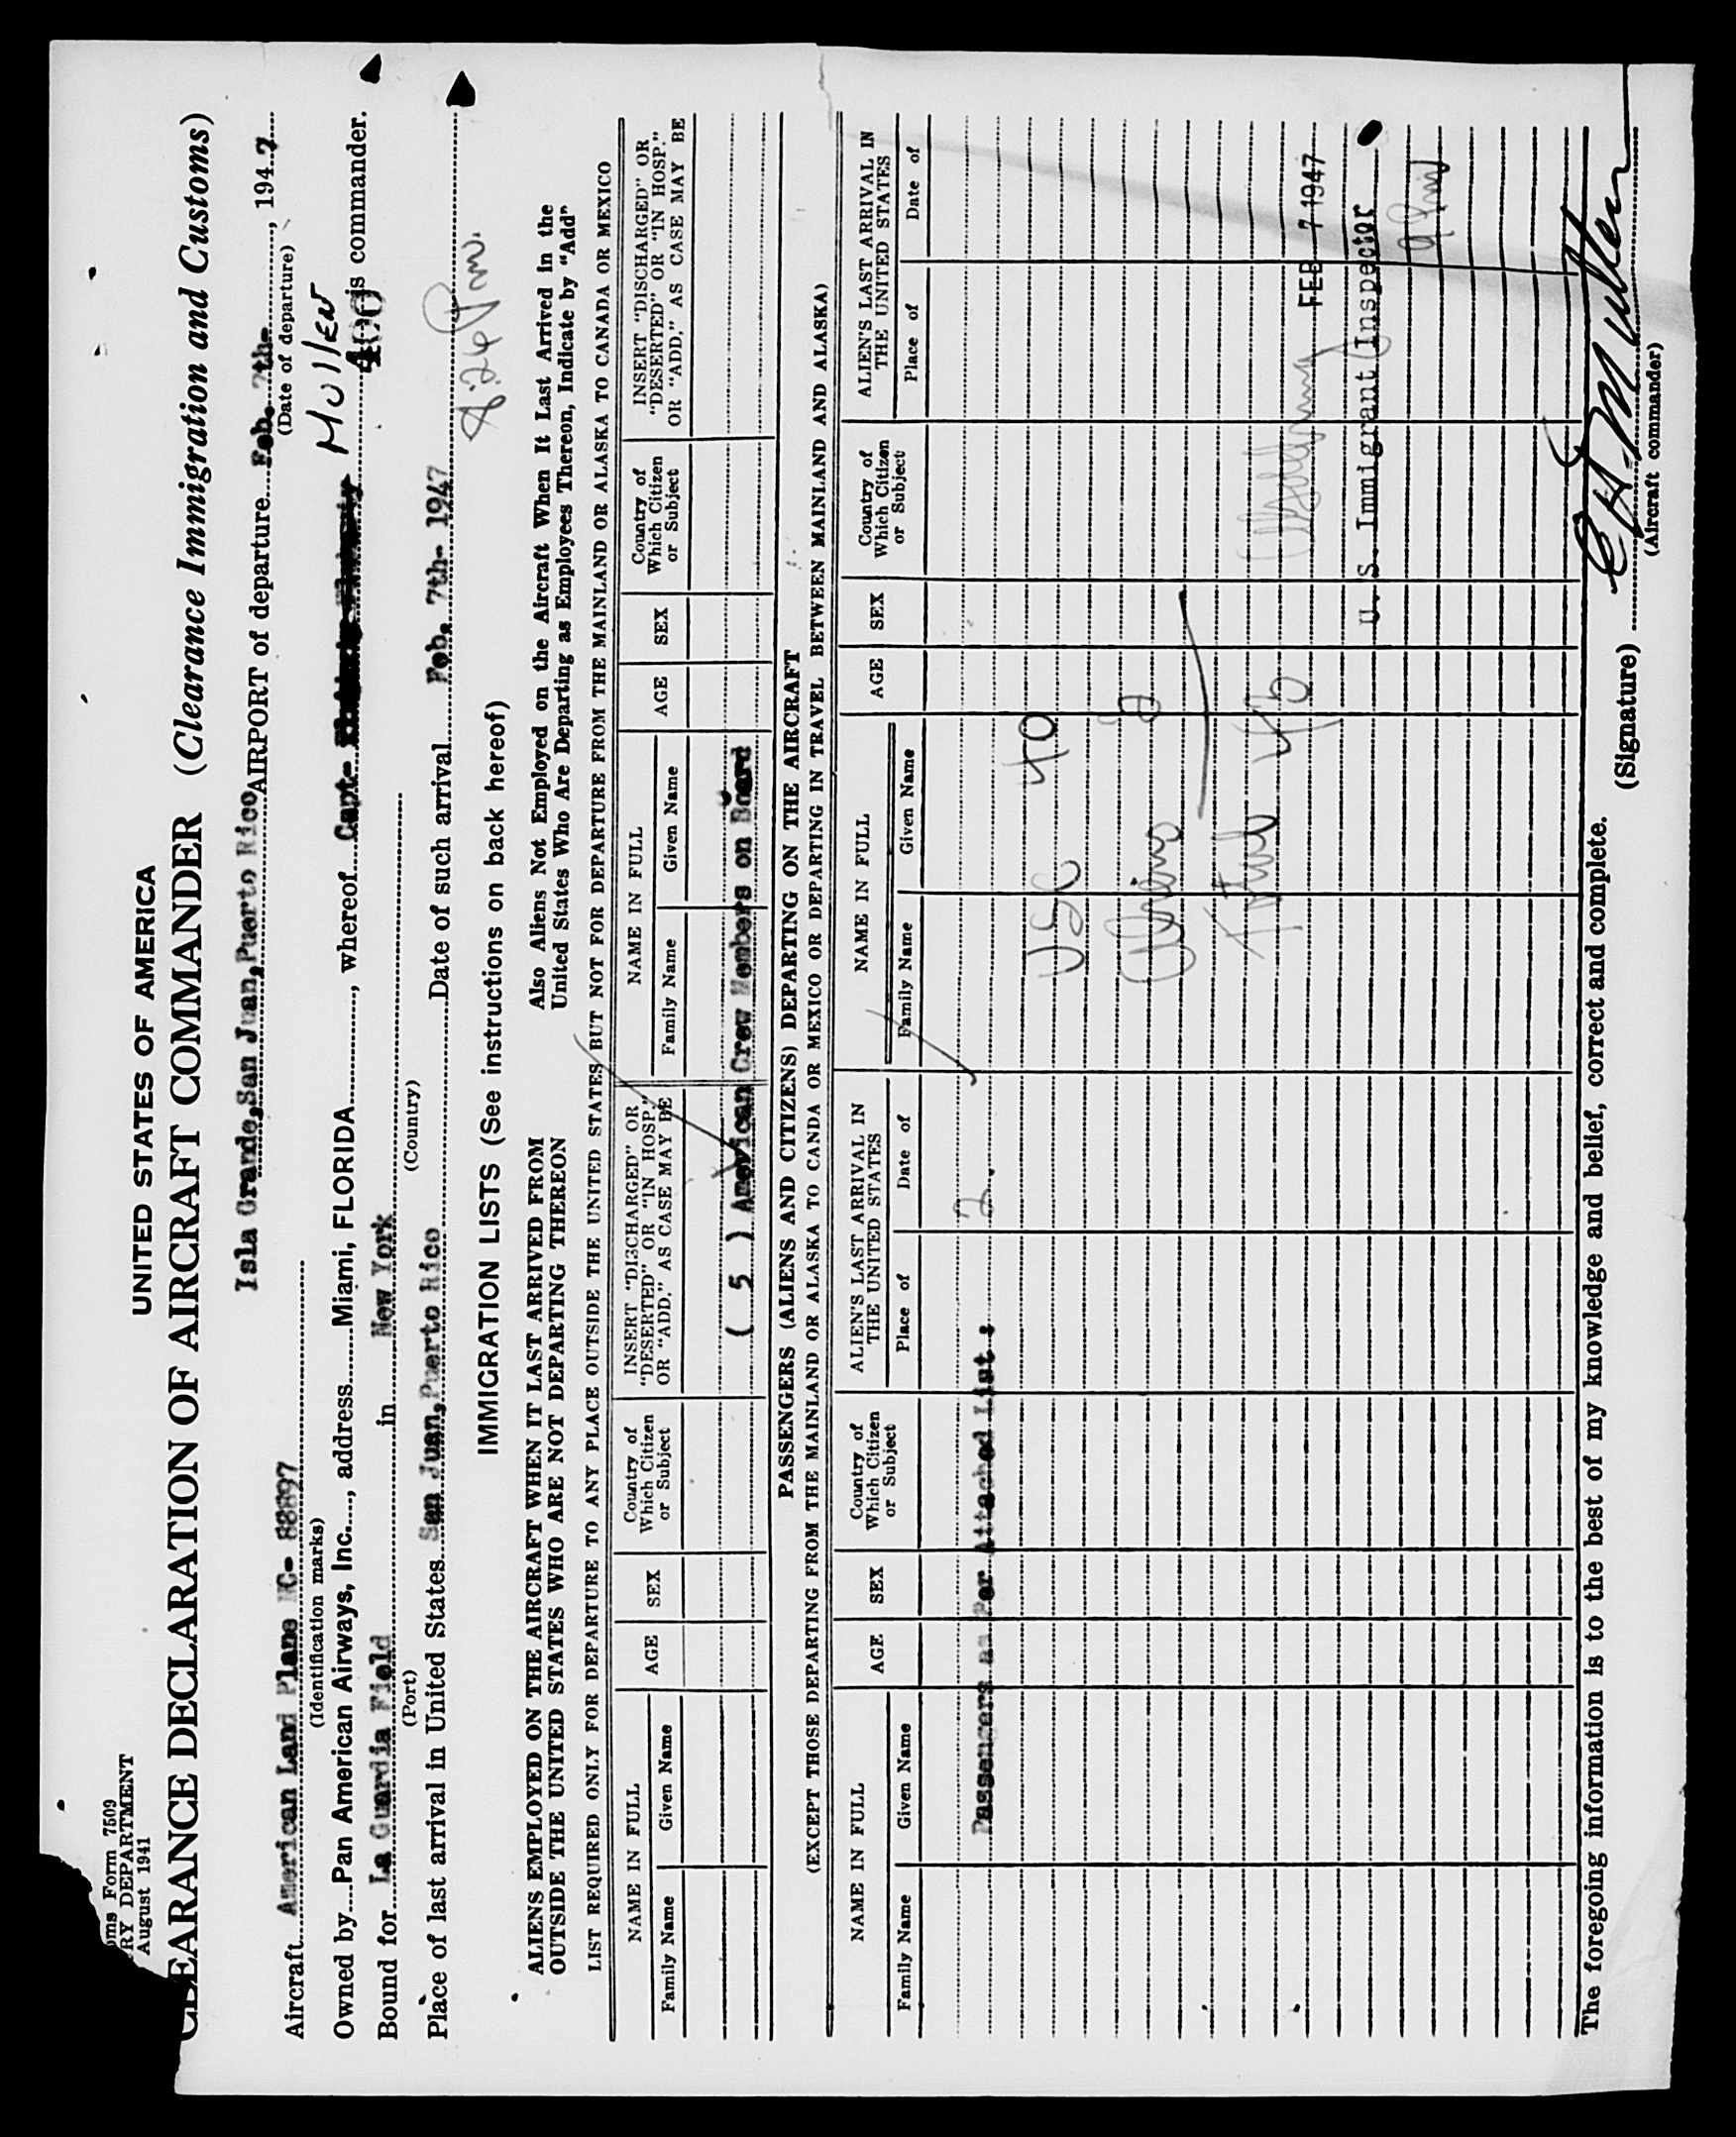 oms Form 7509
RY DEPARTMENT
August 1941
UNITED STATES OF AMERICA
CLEARANCE DECLARATION OF AIRCRAFT COMMANDER (Clearance Immigration and Customs)
Isla Grande,San Juan,Puerto Rico AIRPORT of departure Feb. 7th-, 1947
(Date of departure)
Aircraft American Land Plane NC- 88897
(Identification marks)
Muller
Owned by Pan American Airways, Inc., address Miami, FLORIDA, whereof Capt- is commander.
Bound for La Guardia Field in New York
(Port) (Country)
Place of last arrival in United States San Juan,Puerto Rico Date of such arrival Feb. 7th- 1947
8:26 Pm.
IMMIGRATION LISTS (See instructions on back hereof)
ALIENS EMPLOYED ON THE AIRCRAFT WHEN IT LAST ARRIVED FROM
OUTSIDE THE UNITED STATES WHO ARE NOT DEPARTING THEREON
Also Aliens Not Employed on the Aircraft When It Last Arrived in the
United States Who Are Departing as Employees Thereon, Indicate by "Add"
LIST REQUIRED ONLY FOR DEPARTURE TO ANY PLACE OUTSIDE THE UNITED STATES BUT NOT FOR DEPARTURE FROM THE MAINLAND OR ALASKA TO CANADA OR MEXICO
NAME IN FULL
Family Name Given Name
AGE
SEX
Country of
Which Citizen
or Subject
INSERT "DISCHARGED" OR
"DESERTED" OR "IN HOSP."
OR "ADD," AS CASE MAY BE
NAME IN FULL
Family Name Given Name
AGE
SEX
Country of
Which Citizen
or Subject
INSERT "DISCHARGED" OR
"DESERTED" OR "IN HOSP."
OR "ADD," AS CASE MAY BE
( 5 ) American Crew Members on Board
PASSENGERS (ALIENS AND CITIZENS) DEPARTING ON THE AIRCRAFT
(EXCEPT THOSE DEPARTING FROM THE MAINLAND OR ALASKA TO CANDA OR MEXICO OR DEPARTING IN TRAVEL BETWEEN MAINLAND AND ALASKA)
NAME IN FULL
Family Name Given Name
AGE
SEX
Country of
Which Citizen
or Subject
ALIEN'S LAST ARRIVAL IN
THE UNITED STATES
Place of Date of
NAME IN FULL
Family Name Given Name
AGE
SEX
Country of
Which Citizen
or Subject
ALIEN'S LAST ARRIVAL IN
THE UNITED STATES
Place of Date of
Passengers as Per Attached List : 2.
USC 40
Aliens
Total
FEB 7 1947
U. S. Immigrant Inspector
The foregoing information is to the best of my knowledge and belief, correct and complete.
(Signature) C.H. Muller
(Aircraft commander)